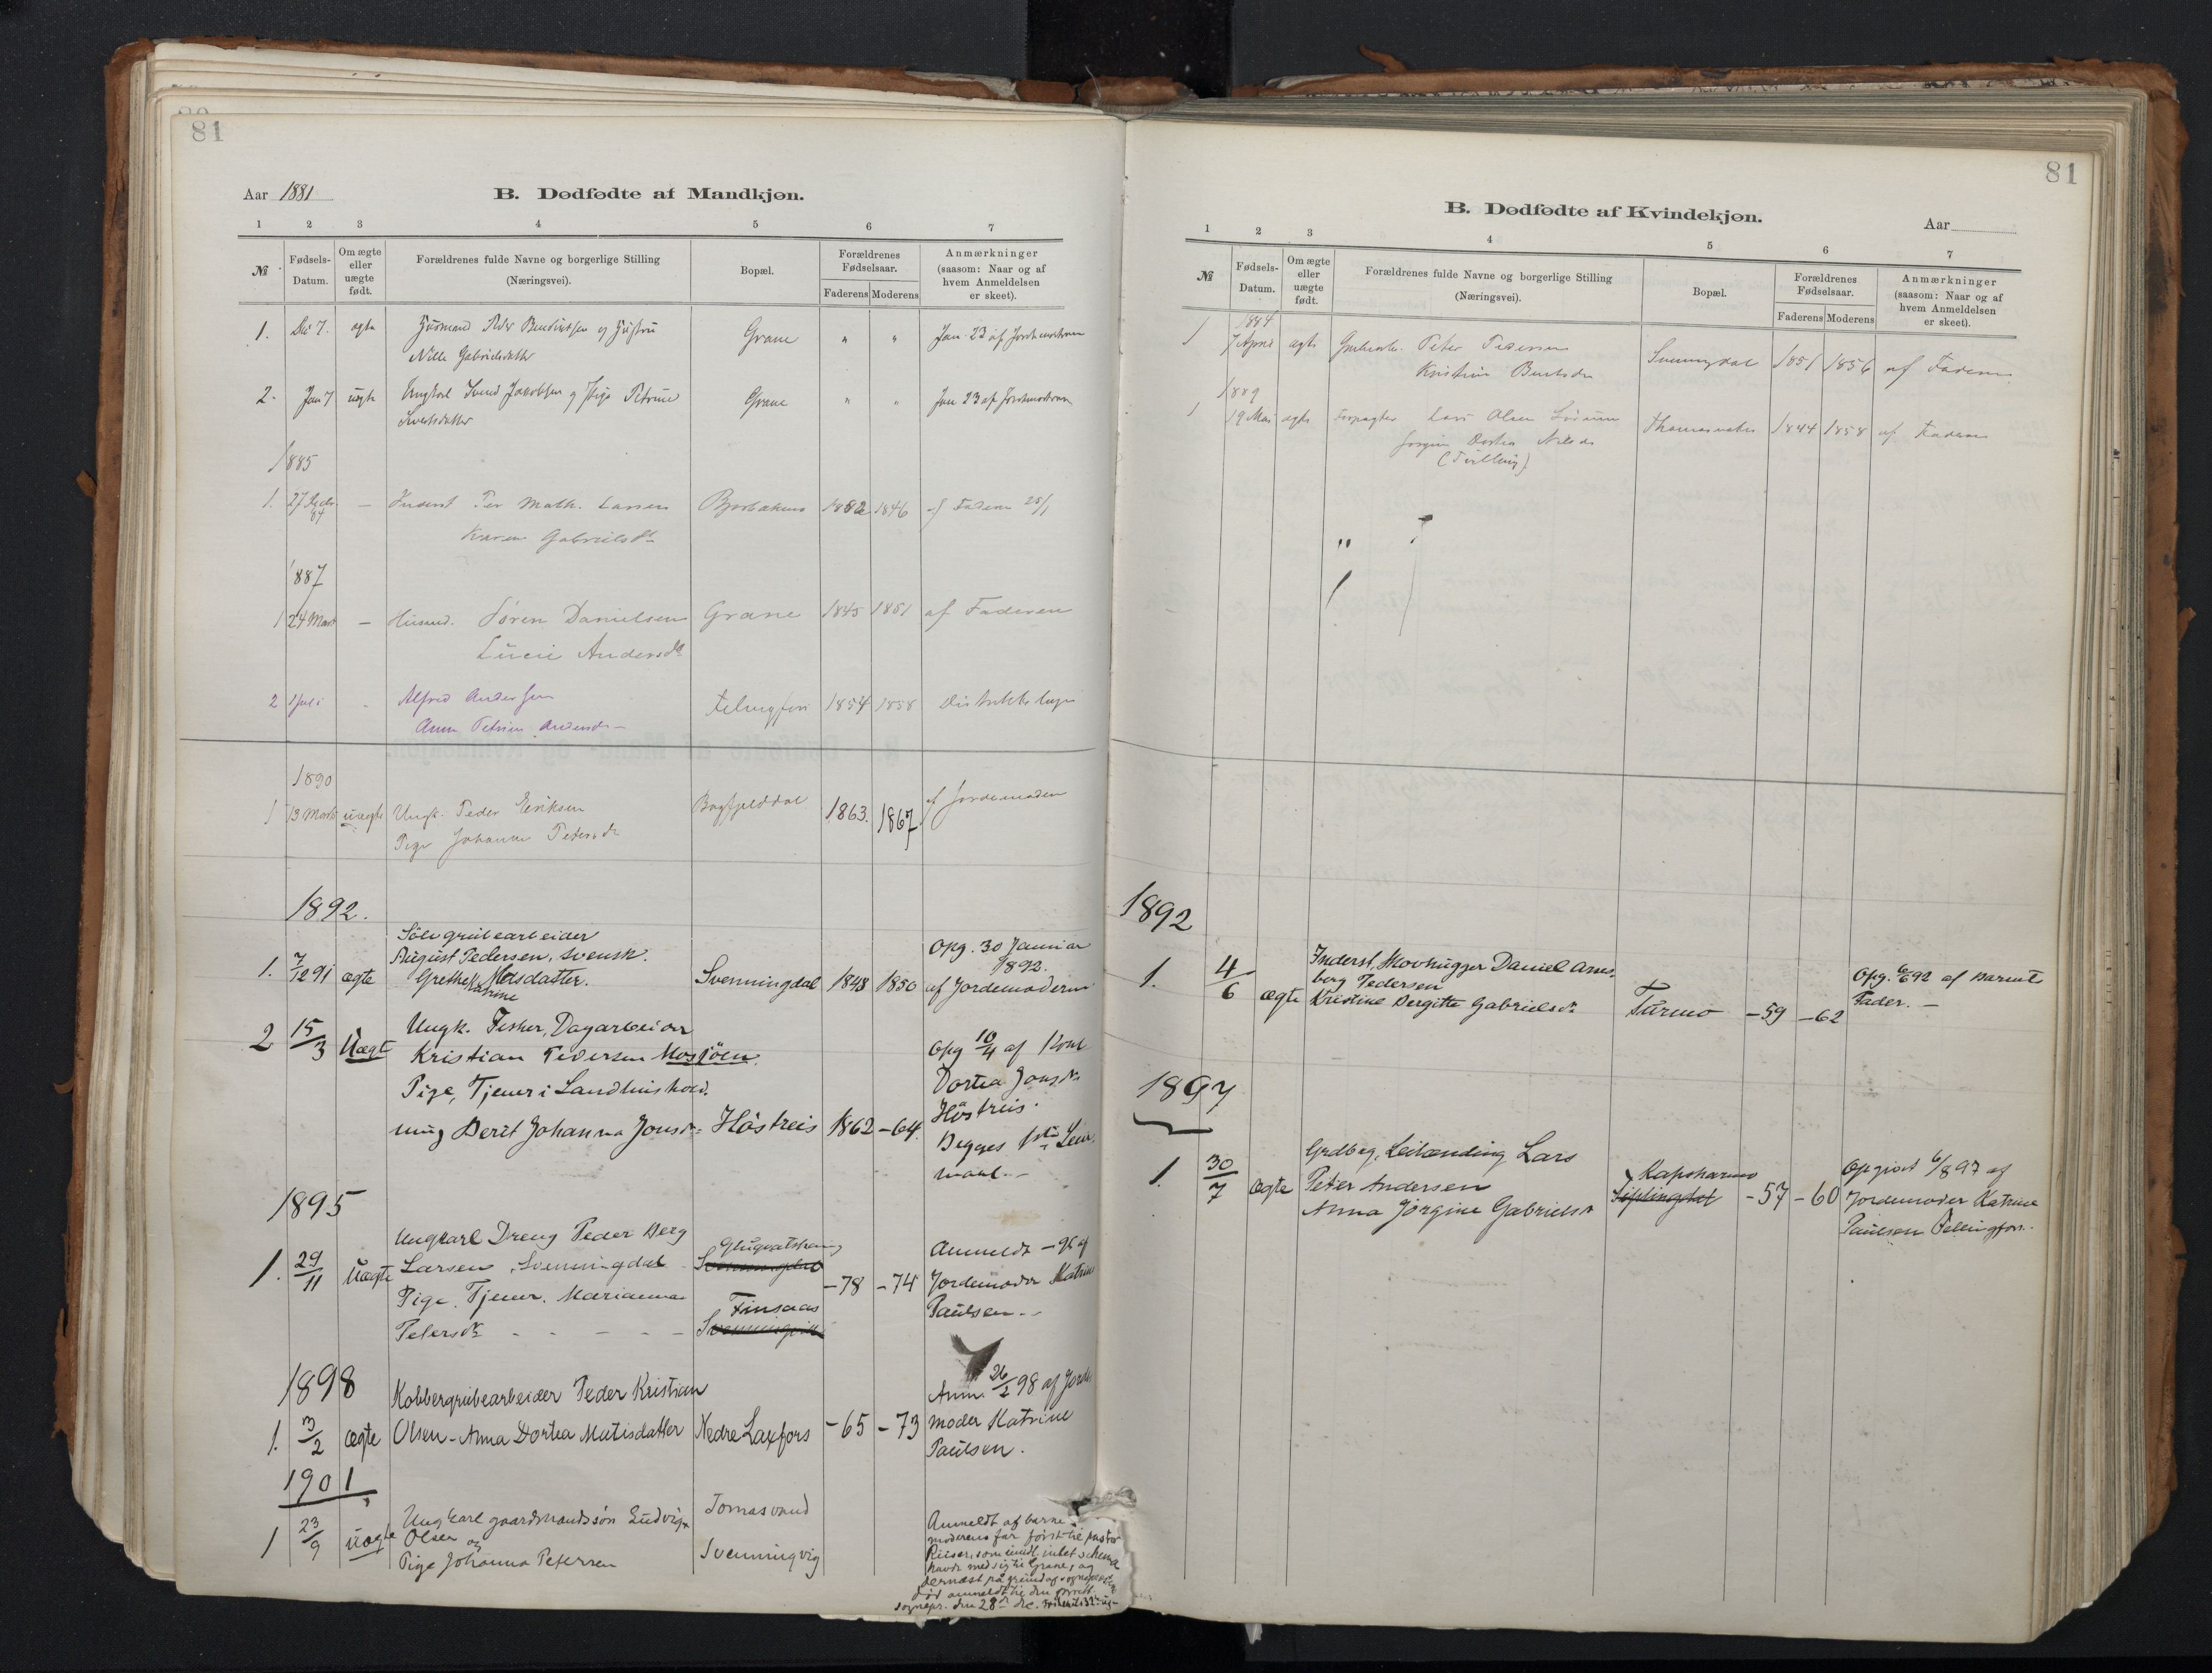 81
Aar 1881
B. Dødfødte af Mandkjøn.
1 2 3 4 5 6 7
№
Fødsels-Datum.
Om ægte eller uægte født.
Forældrenes fulde Navne og borgerlige Stilling
(Næringsvei).
Bopæl.
Forældrenes Fødselsaar.
Faderens Moderens
Anmærkninger
(saasom: Naar og af
hvem Anmeldelsen
er skeet).
1. 7. ægte Husmand Peder og Hustru Grane " " Jan. 23 af Jordemoderen
Nille Gabrielsdatter
2. Jan 7 uægte Ungkarl Jakobsen og Pige Petrine Grane " " Jan 23 af Jordemoderen
Sivertsdatter
1885
1. 27 84 — Inderst Per Math. Larsen 1846 af Faderen 25/1
Karen Gabrielsdtr
1887
1 24 Mart — Husmd. Søren Danielsen Grane 1845 1851 af Faderen
Lucie Andersdtr
2 1 Juli - Alfred Andersen 1854 1858 Distriktslægen
Anna Petrine Andersdr —
1890
1 13 Marts uægte Ungk. Peder Eriksen Bagfjelddal 1863. 1867 af Jordemoder
Pige Johanna Petersdr
1892.
Sölvgrubearbeider
August Pedersen, svensk. Opg. 30 Januar
1. 7/12 91 ægte Grethe Katrine Matsdatter. Svenningdal 1848 1850 1892.
af Jordemoderen
2 15/3 Uægte Ungk. Fisker, Dagarbeider
Kristian Pedersen Mosjöen. Opg 10/4 af Kone
Pige, Tjener i Landhushold- Dortea Jonsdr
ning Berit Johanna Jonsdr Höstreis 1862 -64. Höstreis.
Begges 1ste Leier-
maal. —
1895
Ungkarl Dreng Peder Berg
1. 29/11 Uægte Larsen, Svenningdal Svenningdal -78 -74 Anmeldt -96 af
Pige. Tjener. Marianna Finsaas Jordemoder Katrine
Petersdr - - - - Paulsen. —
1898
Kobbergrubearbeider Peder Kristian Anm. 26/2 98 af Jorde-
1. 3/2 ægte Olsen - Anna Dortea Matisdatter Nedre Laxfors -65 -73 moder Katrine
Paulsen.
1901
1 23/9 uægte Ungkarl gaardmandssön Ludvig Tomasvand
Olsen og
Pige Johanna Petersen Svenningvig
Anmeldt af barne-
moderens far först til pastor
Riiser, som imidl. intet schema
havde med sig til Grane, og
dernæst på grund af sogneprestens
död anmeldt til den
sognepr. den 28de dec.
81
B. Dødfødte af Kvindekjøn.
Aar
1 2 3 4 5 6 7
№
Fødsels-Datum.
Om ægte eller uægte født.
Forældrenes fulde Navne og borgerlige Stilling
(Næringsvei).
Bopæl.
Forældrenes Fødselsaar.
Faderens Moderens
Anmærkninger
(saasom: Naar og af
hvem Anmeldelsen
er skeet).
1884
1 7 April ægte Grubearb. Peter Pedersen Svenningdal 1851 1856 af Faderen
Kristine
1889
1 19 Mai ægte Forpagter Lars Olsen Thomasvatn 1844 1858 af Faderen
Jörgine Dortea Nilsdr
(Tvilling)
1892
1. 4/6 ægte Inderst, Skovhugger Daniel Arnes-
berg Pedersen
Kristine Bergitte Gabrielsdr Turmo -59 -62 Opg. 6/6 92 af Barnets
Fader. —
1897
1. 30/7 ægte Grdbrg, Leilænding Lars
Peter Andersen
Anna Jörgine Gabrielsdr Kapskarmo -57 -60 Opgivet 6/8 97 af
Jordemoder Katrine
Paulsen Fellingfors.